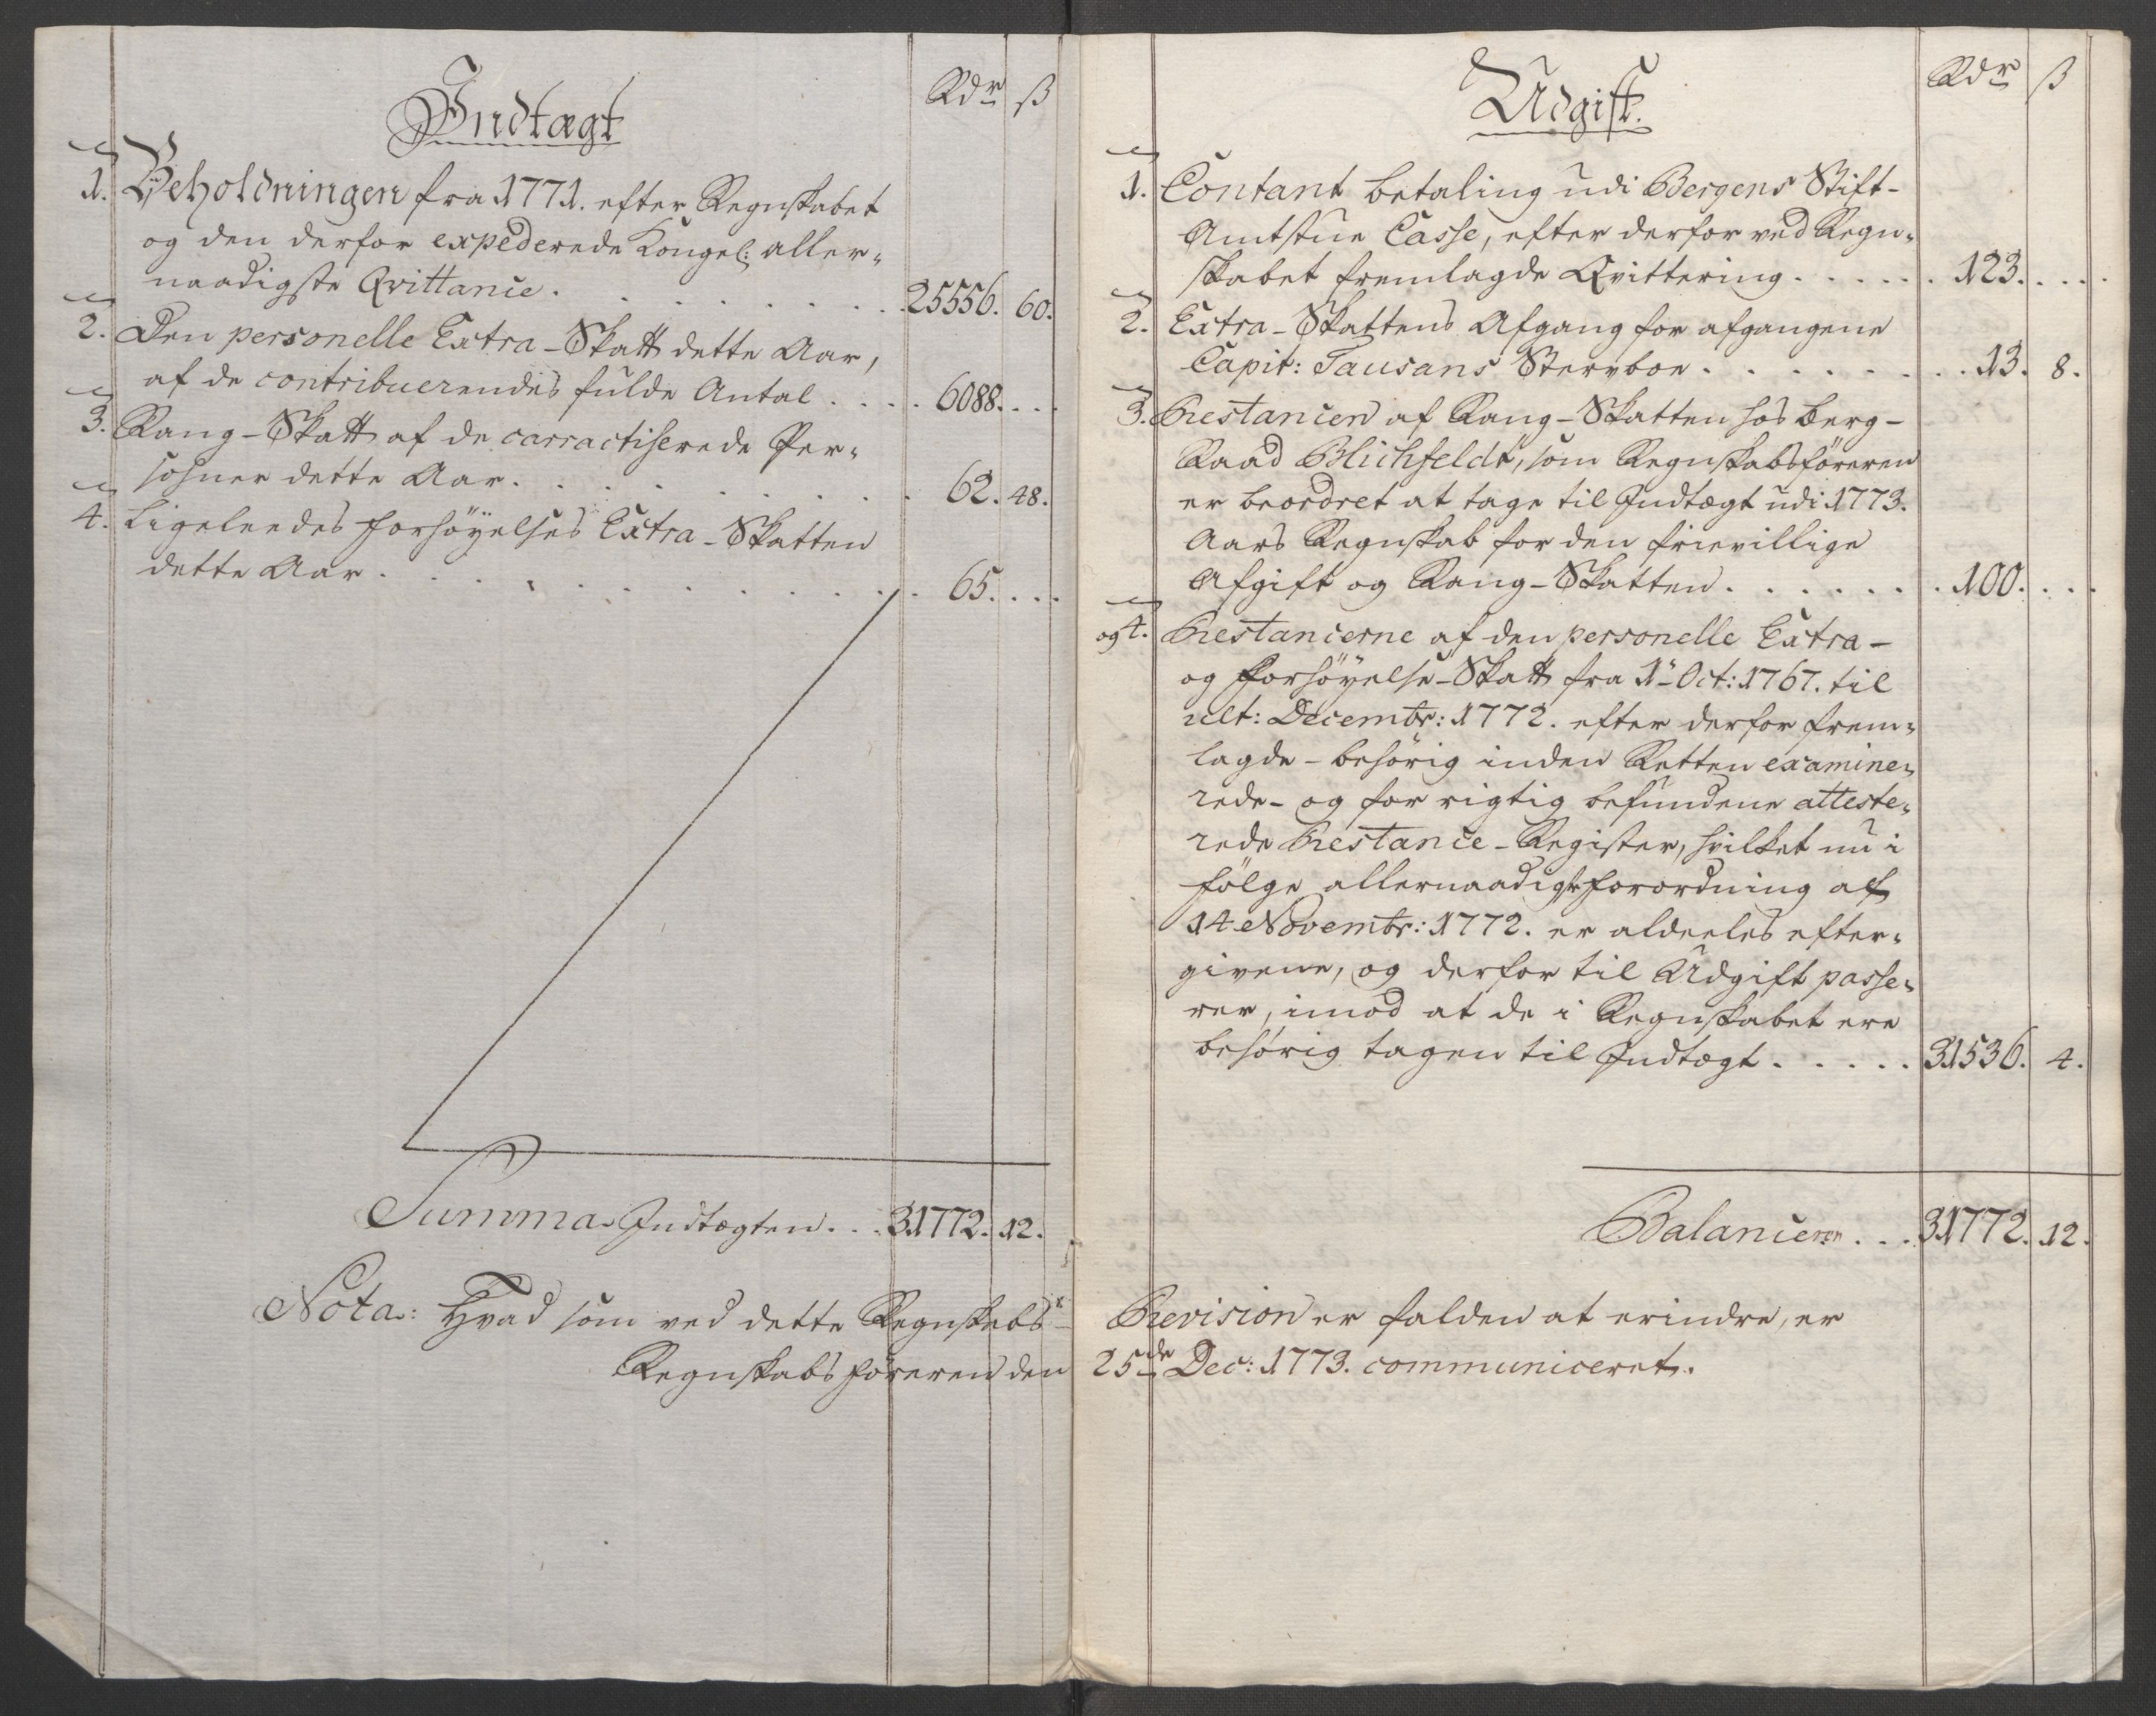 Indtægt
Rdr ß
1. Beholdningen fra 1771. efter Regnskabet
og den derfor expederede Kongel: aller-
naadigste Qvittance . . . . . . . . 25556. 60.
2. Den personelle Extra-Skatt dette Aar,
af de contribuerendes fulde Antal . . . . 6088. . .
3. Rang-Skatt af de carractiserede Per-
sohner dette Aar . . . . . . . . . 62. 48.
4. Ligeleedes forhöyelses Extra-Skatten
dette Aar . . . . . . . . . . . 65. . . .
Summa Indtægten . . . 31772. 12.
Udgift.
Rdr ß
1. Contant betaling udi Bergens Stift-
Amtstue Casse, efter derfor ved Regn-
skabet fremlagde Qvittering . . . . . . 123. . . . .
2. Extra-Skattens Afgang for afgangene
Capit: Tausans Sterfboe . . . . . . . . 13. 8.
3. Restancen af Rang-Skatten hos Berg-
Raad Blichfeldt, som Regnskabsföreren
er beordret at tage til Indtægt udi 1773.
Aars Regnskab for den frievillige
Afgift og Rang-Skatten . . . . . . . 100. . . .
og 4. Restancerne af den personelle Extra-
og Forhöyelse-Skatt fra 1 Oct: 1767. til
ult: Decembr: 1772. efter derfor frem-
lagde- behörig inden Retten examine-
rede- og for rigtig befundene atteste-
rede Restance-Register, hvilket nu i
fölge allernaadigste forordning af
14 Novembr: 1772. er aldeeles efter-
givene, og derfor til Udgift passe-
rer, imod at de i Regnskabet ere
behörig tagen til Indtægt . . . . . 31536. 4.
Balancerer . . . 31772. 12.
Nota: Hvad som ved dette Regnskabs Revision er falden at erindre, er
Regnskabsföreren den 25de Dec: 1773. communiceret.